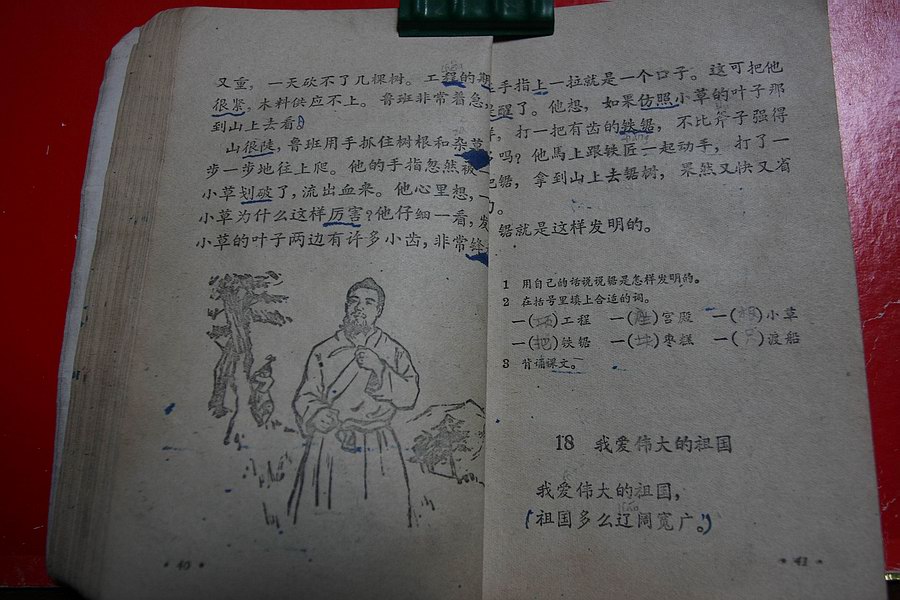 又重，一天砍不了几棵树。工程的期
很紧，木料供应不上。鲁班非常着急，
到山上去看。
山很陡，鲁班用手抓住树根和杂草
步一步地往上爬。他的手指忽然被一
小草划破了，流出血来。他心里想，一
小草为什么这样厉害？他仔细一看，发
小草的叶子两边有许多小齿，非常锋
·40·
手指上一拉就是一个口子。这可把他
醒了。他想，如果仿照小草的叶子那
，打一把有齿的铁锯，不比斧子强得
吗？他馬上跟铁匠一起动手，打了一
锯，拿到山上去锯树，果然又快又省
。
锯就是这样发明的。
1 用自己的话说说锯是怎样发明的。
2 在括号里填上合适的词。
一( )工程 一(座)宫殿 一(根)小草
一(把)铁锯 一(块)枣糕 一( )渡船
3 背诵课文。
18 我爱伟大的祖国
我爱伟大的祖国，
(祖国多么辽阔宽广。)
·41·